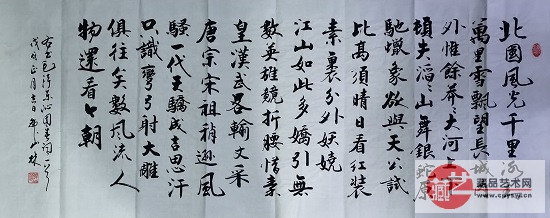 北國風光千里
萬里雪飄望長城
外惟餘莽莽大河上
頓失滔滔山舞銀
馳蠟象欲與天公試
比高須晴日看紅裝
素裹分外妖嬈
江山如此多嬌引無
數英雄競折腰惜秦
皇漢武略輸文采
唐宗宋祖稍遜風
騷一代天驕成吉思汗
只識彎弓射大雕
俱往矣數風流人
物還看今朝
毛澤東沁園春詞一首
戊戌正月吉日
藏品艺术网